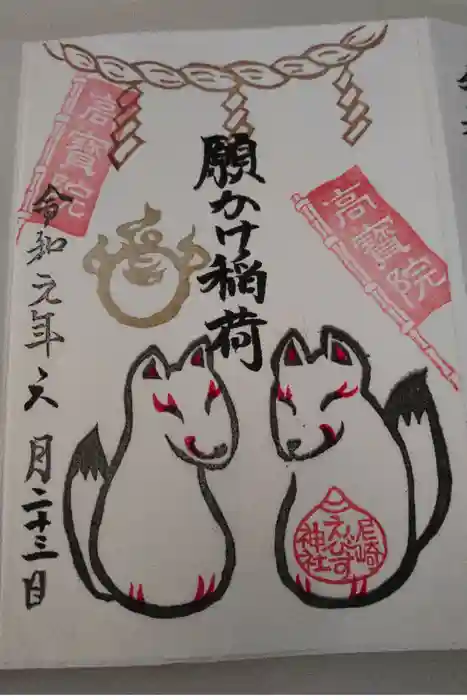 高寶院
願かけ稲荷
高寶院
令和元年六月二十三日
尼崎
えびす
神社